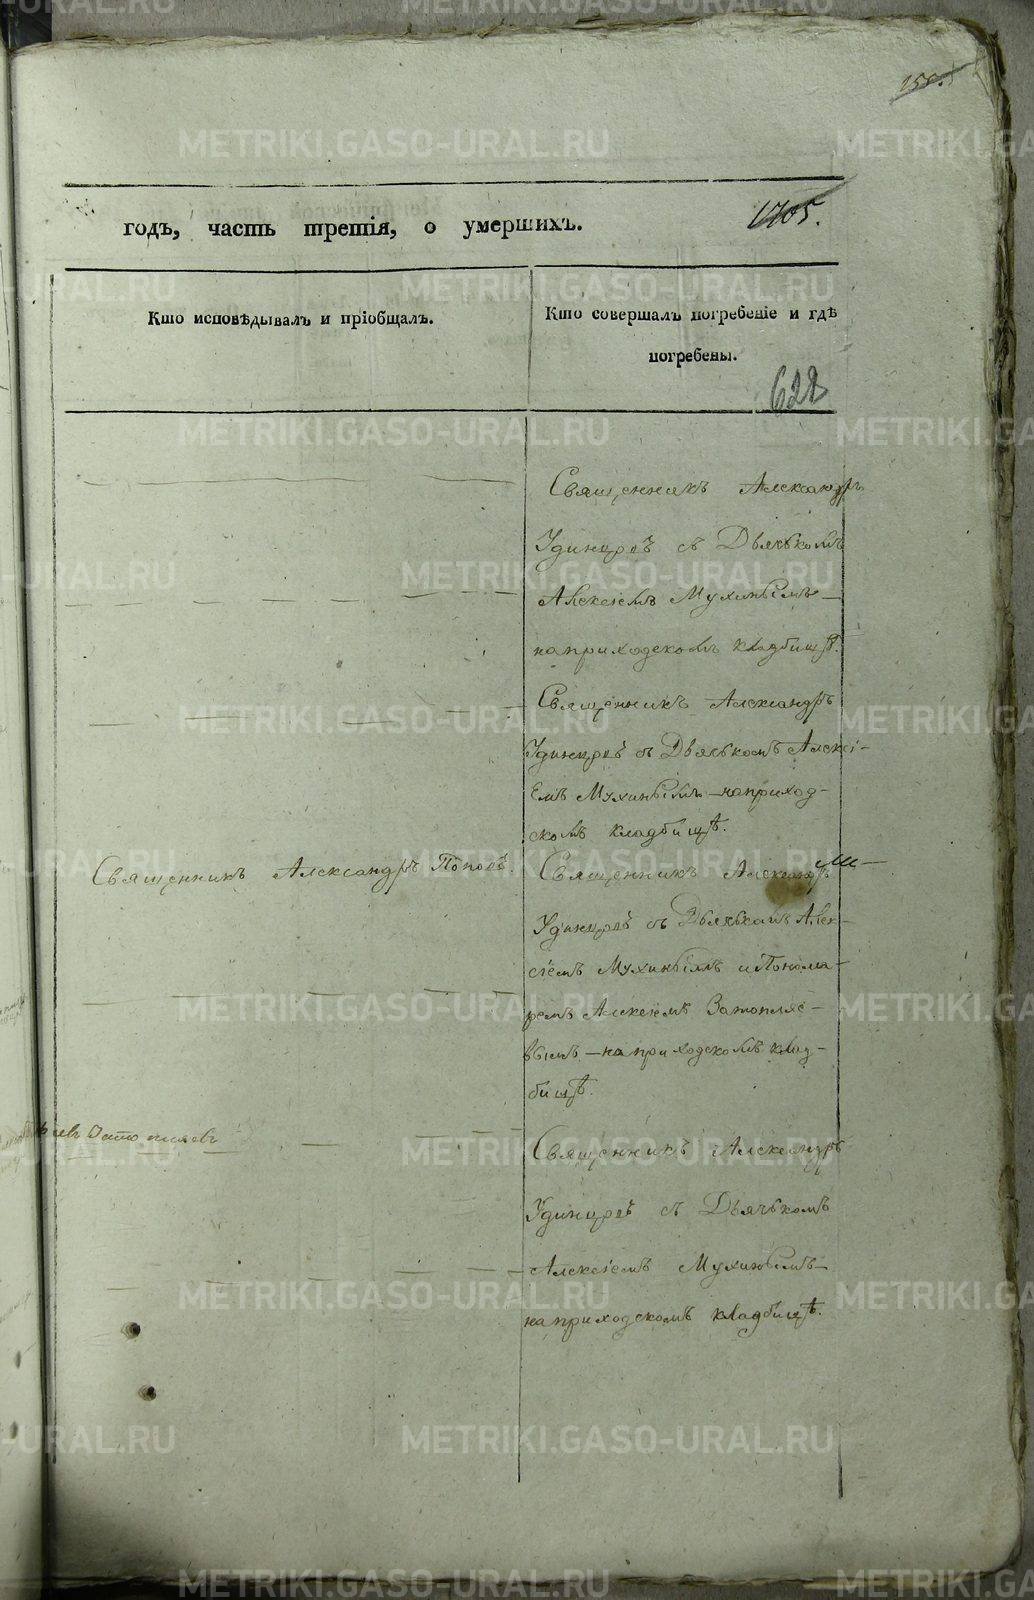 155.
1705.
годъ, часть третія, о умершихъ.
Кто исповѣдывалъ и пріобщалъ.
Кто совершалъ погребеніе и гдѣ
погребены.
628
Священникъ Александръ
Удинцовъ съ Дьячькомъ
Алексіемъ Мухинымъ —
на приходскомъ кладбищѣ.
Священникъ Александръ
Удинцовъ съ Дьячькомъ Алексі-
емъ Мухинымъ — на приход-
скомъ кладбищѣ.
Священникъ Александръ Поповъ.
Священникъ Александръ
Удинцовъ съ Дьячькомъ Алек-
сіемъ Мухинымъ и Понома-
ремъ Алексіемъ Затопляе-
вымъ — на приходскомъ клад-
бищѣ.
Священникъ Александръ
Удинцовъ съ Дьячькомъ
Алексіемъ Мухинымъ —
на приходскомъ кладбищѣ.
METRIKI.GASO-URAL.RU